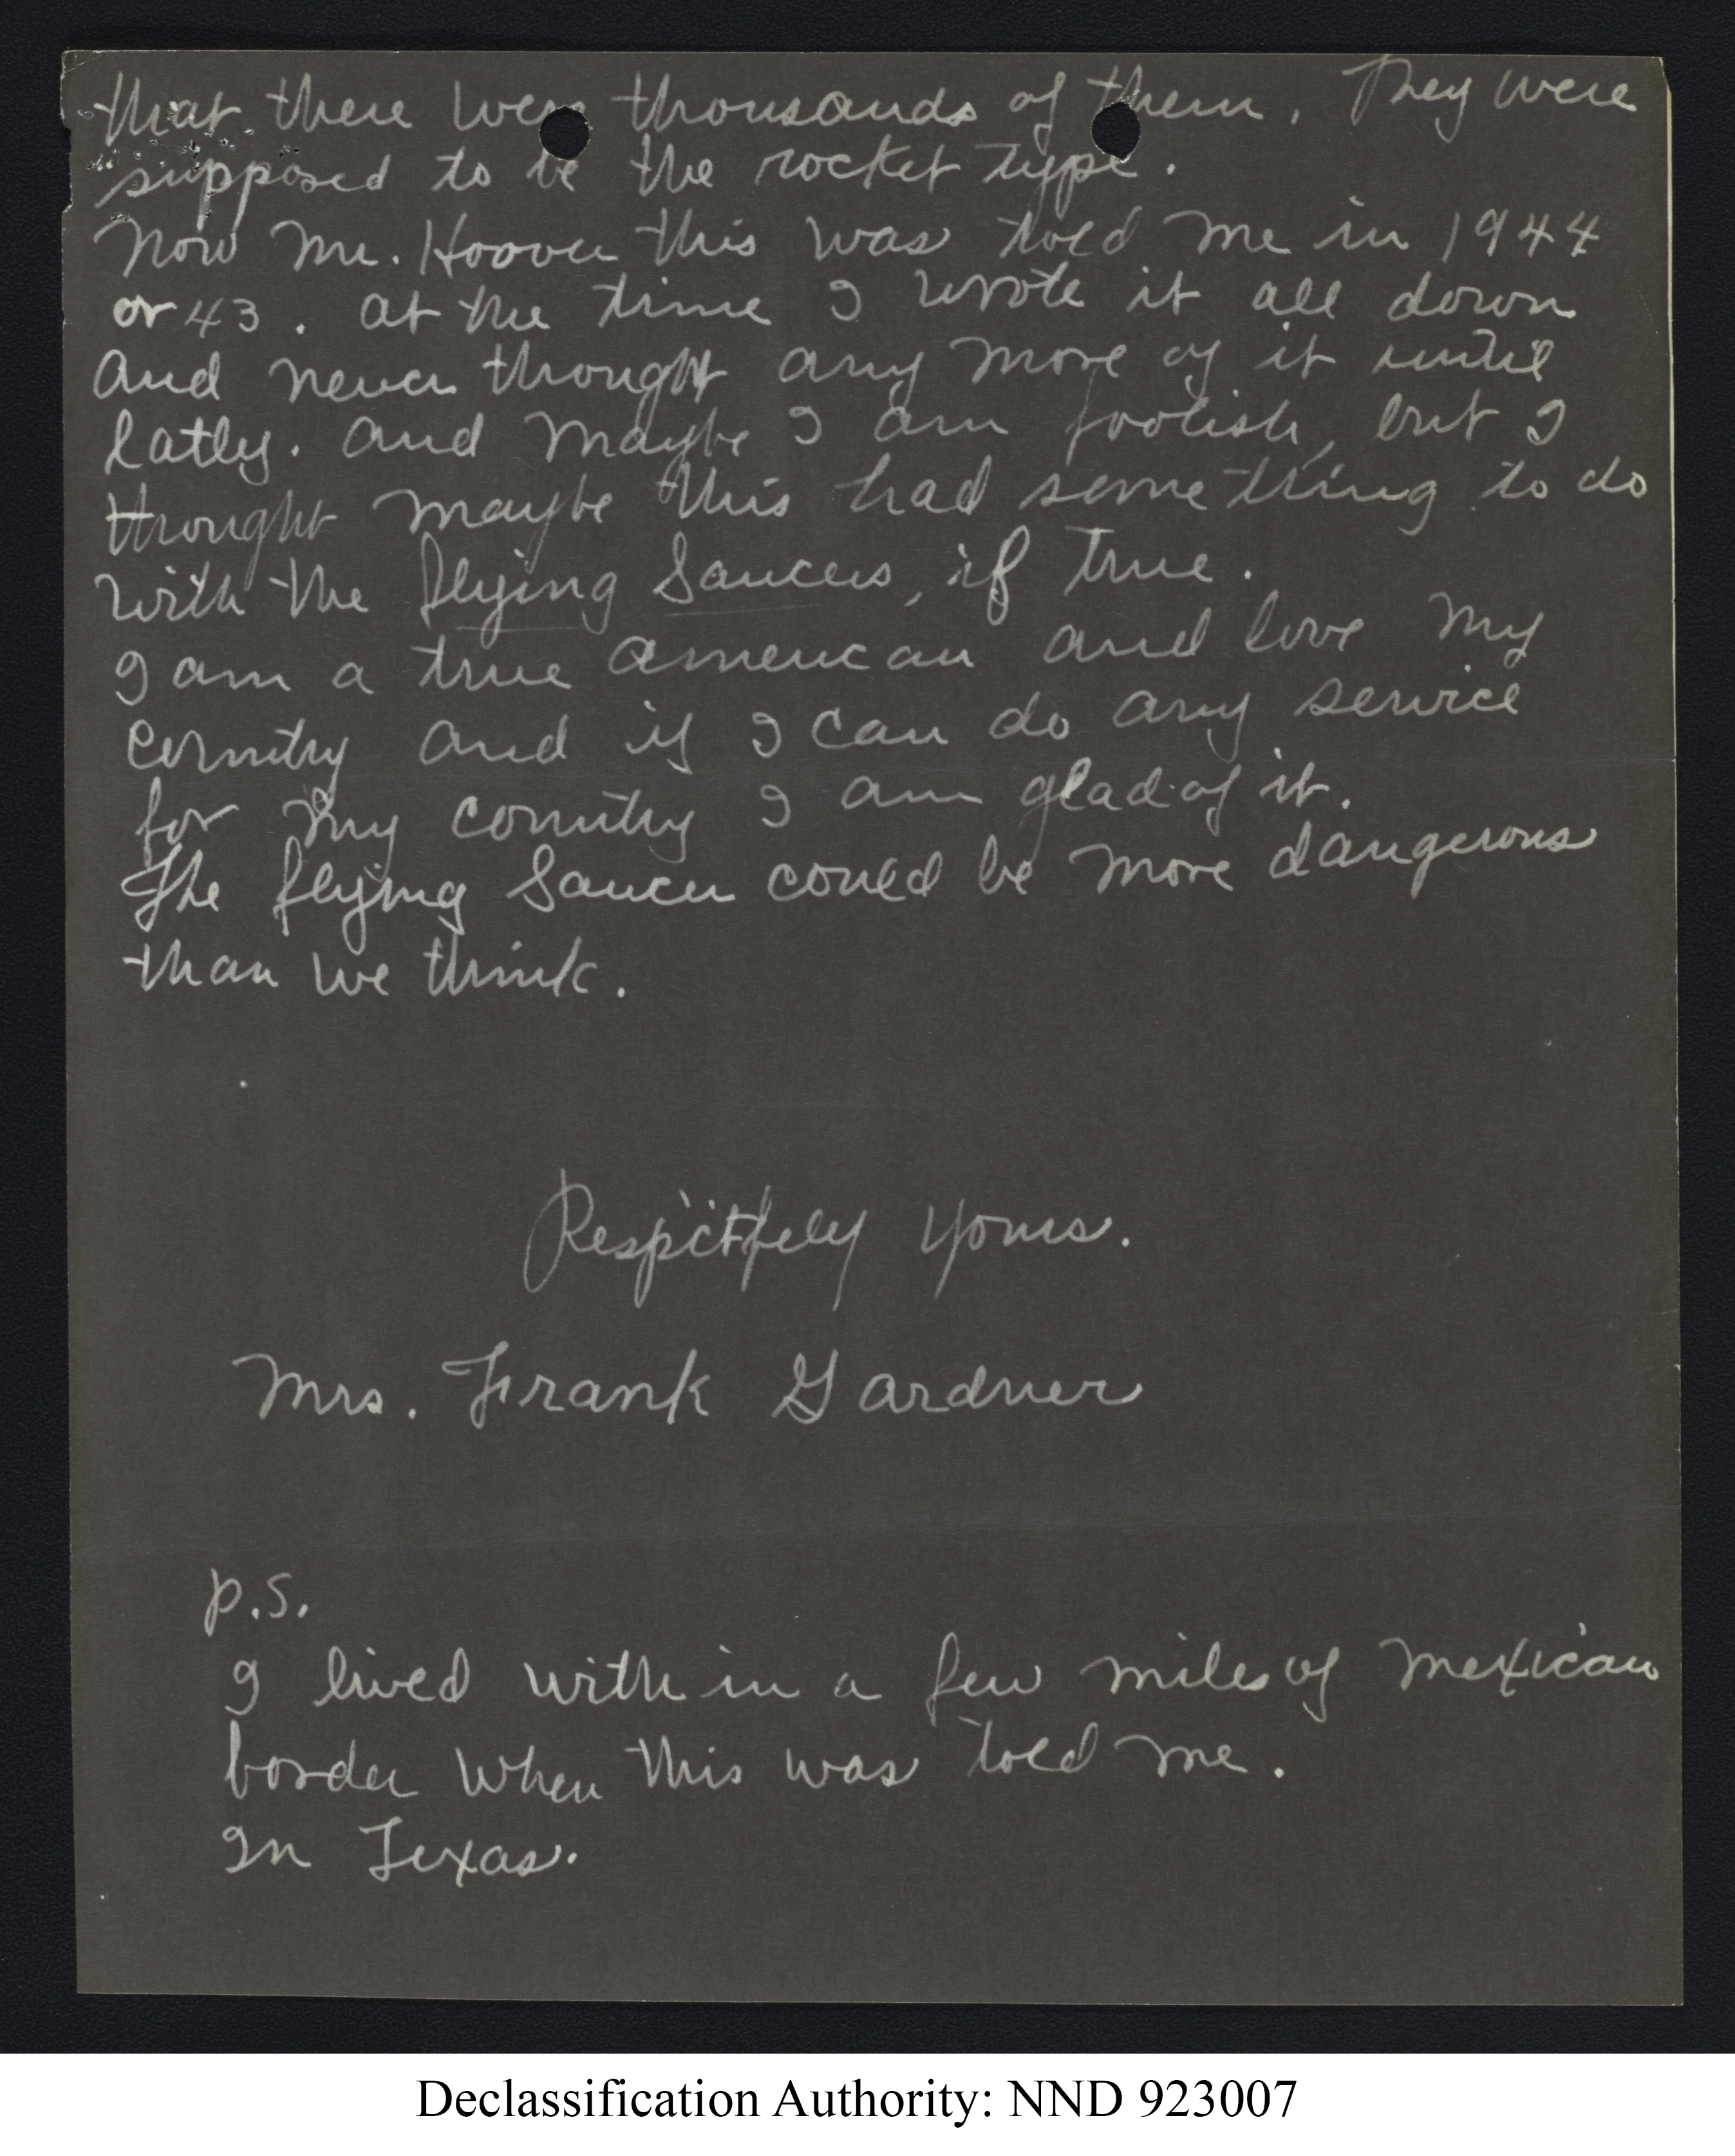 that there were thousands of them. They were
supposed to be the rocket type.
Now Mr. Hoover this was told me in 1944
or 43. at the time I wrote it all down
and never thought any more of it until
latly. and maybe I am foolish, but I
thought maybe this had something to do
with the flying Saucers, if true.
I am a true american and love my
country and if I can do any service
for my country I am glad of it.
The flying Saucer could be more dangerous
than we think.
Respictfely yours.
Mrs. Frank Gardner
p.s.
I lived with in a few miles of mexican
border when this was told me.
In Texas.
Declassification Authority: NND 923007